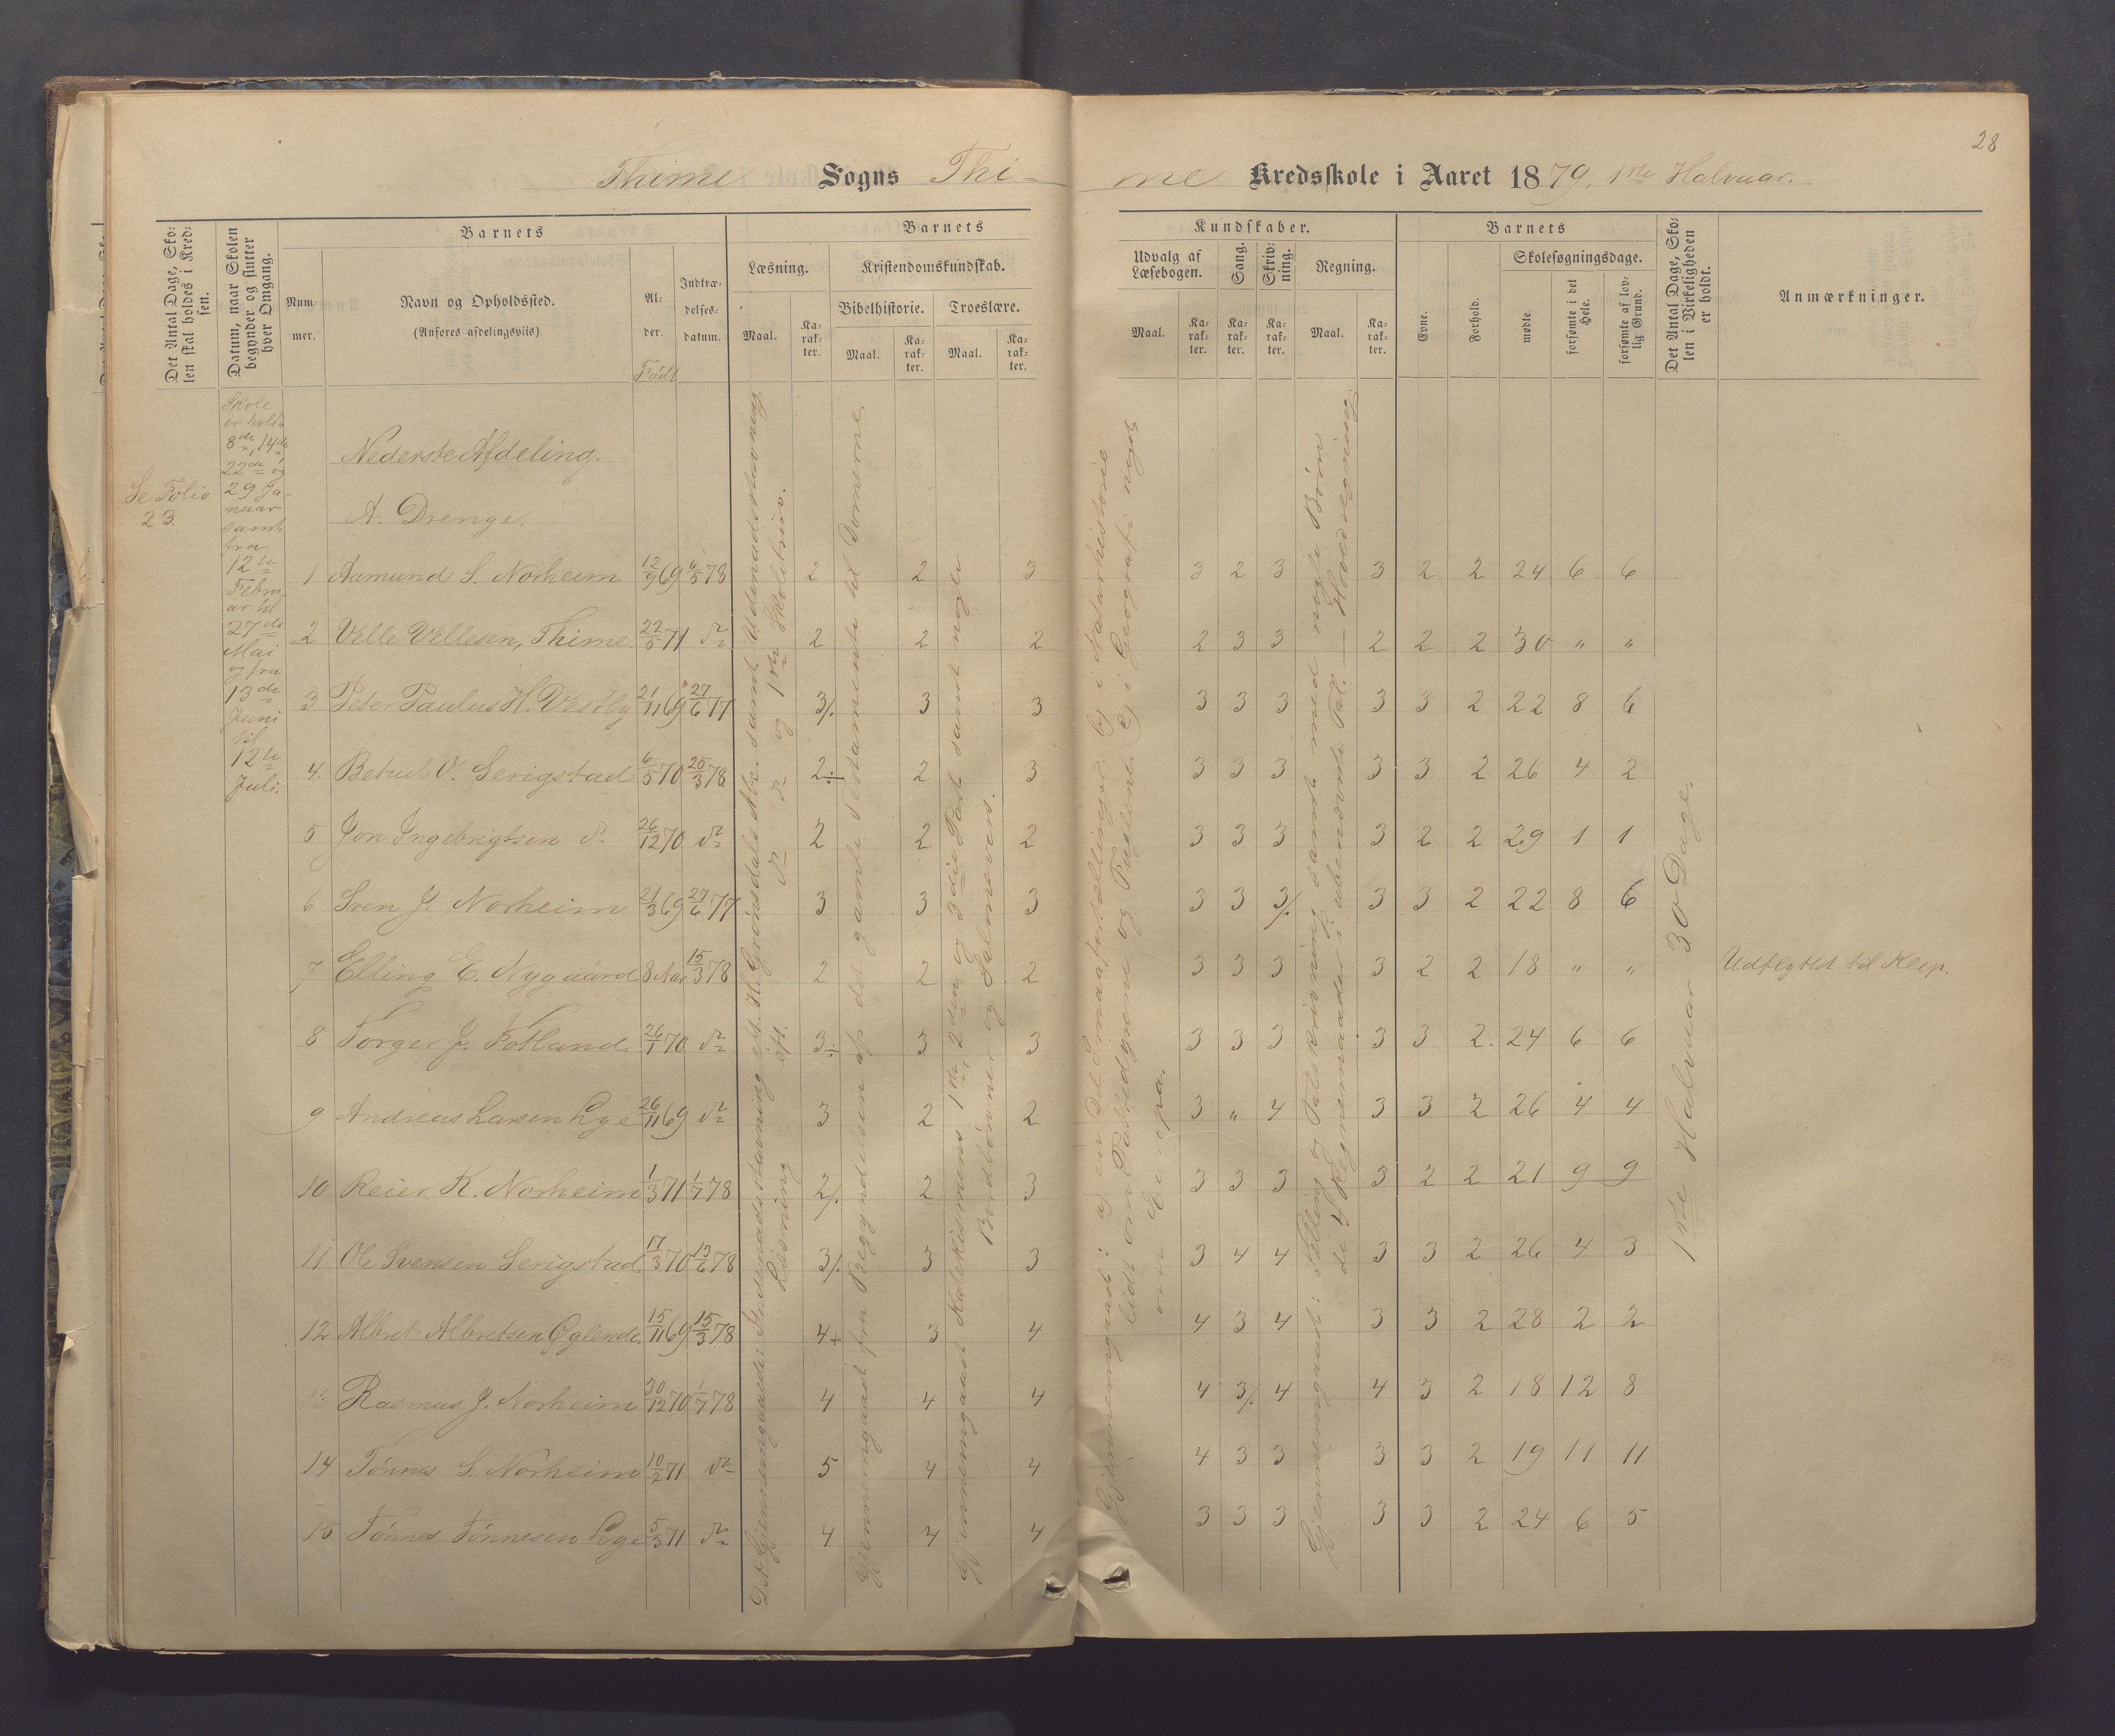 28
Thime Sogns Thi-
me Kredsskole i Aaret 1879, 1ste Halvaar.
Det Antal Dage, Sko-
len skal holdes i Kred-
sen.
Datum, naar Skolen
begynder og slutter
hver Omgang.
Barnets
Num-
mer.
Navn og Opholdssted.
(Anføres afdelingsviis).
Al-
der.
Født
Indtræ-
delses-
datum.
Barnets
Læsning.
Maal.
Ka-
rak-
ter.
Kristendomskundskab.
Bibelhistorie.
Maal.
Ka-
rak-
ter.
Troeslære.
Maal.
Ka-
rak-
ter.
Kundskaber.
Udvalg af
Læsebogen.
Maal.
Ka-
rak-
ter.
Sang.
Ka-
rak-
ter.
Skriv-
ning.
Ka-
rak-
ter.
Regning.
Maal.
Ka-
rak-
ter.
Barnets
Evne.
Forhold.
Skolesøgningsdage.
mødte.
forsømte i det
Hele.
forsømte af lov-
lig Grund.
Det Antal Dage, Sko-
len i Virkeligheden
er holdt.
Anmærkninger.
Se Folio
23.
Skole
er holdt
8de, 14de
22de og
29 Ja-
nuar
samt
fra
12te
Febru-
ar til
27de
Mai
og fra
13de
Juni
til
12te
Juli.
Nederste Afdeling.
A. Drenge.
1 Aamund S. Norheim 12/9 69 6/5 78 2 2 3 3 2 3 3 2 2 24 6 6
2 Velle Villesen, Thime 22/5 71 d° 2 2 2 2 3 3 2 2 2 30 " "
3 Peter Paulus H. Vestly 21/11 69 27/6 77 3/. 3 3 3 3 3 3 3 2 22 8 6
4. Betuel O. Serigstad 6/5 70 25/3 78 2÷ 2 3 3 3 3 3 3 2 26 4 2
5 Jon Ingebrigtsen d° 26/12 70 d° 2 2 2 3 3 3 3 2 2 29 1 1
6 Sven J. Norheim 21/3 69 27/6 77 3 3 3 3 3 3/. 3 3 2 22 8 6
7 Elling E. Nygaard 8 Aar 15/3 78 2 2 2 3 3 3 3 2 2 18 " " Udflyttet til Klep.
8 Torger J. Fotland. 26/1 70 d° 3÷ 3 3 3 3 3 3 3 2. 24 6 6
9 Andreas Larsen Lye 26/11 69 d° 3 2 2 3 " 4 3 3 2 26 4 4
10 Reier K. Norheim 1/3 71 1/7 78 2/. 2 3 3 3 3 3 2 2 21 9 9
11 Ole Svensen Serigstad 17/3 70 13/6 78 3/. 3 3 3 4 4 3 3 2 26 4 3
12 Albret Albretsen Øglend. 15/11 69 15/3 78 4+ 3 4 4 3 4 3 3 2 28 2 2
13 Rasmus J. Norheim 30/12 70 1/7 78 4 4 4 4 3/. 4 4 3 2 18 12 8
14 Tønnes S. Norheim 10/2 71 d° 5 4 4 4 3 3 3 3 2 19 11 11
15 Tønnes Tønnesen Lye 5/3 71 d° 4 4 4 3 3 3 3 3 2 24 6 5
Det Gjennemgaaede: Indenadsstavning eft. H. Grønsdals Abc. samt Udenadsstavning.
Læsning eft. d° d° og 1ste Skoletrin.
Gjennemgaaet fra Begyndelsen af det gamle Testamente til Domerne.
Gjennemgaaet Katekismens 1ste, 2den og 3die Part samt nogle
Bordbønner og Salmevers.
Gjennemgaaet: a) en Del Smaafortællinger. b) i Naturhistorie
lidt om Pattedyrene og Fuglene. c) i Geografi noget
om Europa.
Gjennemgaaet: Tælling og Talskrivning samt med nogle Børn
de 4 Regnemaader i ubenævnte Tal. — Hovedregning.
1ste Halvaar 30 Dage.